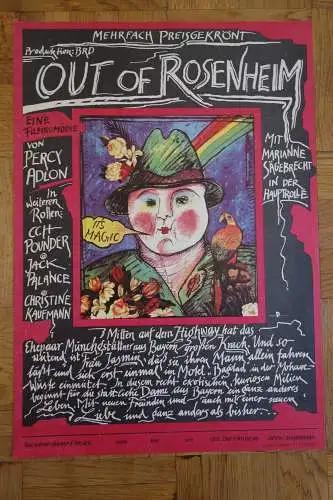 MEHRFACH PREISGEKRÖNT
Produktion: BRD
OUT OF ROSENHEIM
EINE
FILMKOMÖDIE
VON
PERCY
ADLON
In
weiteren
Rollen:
CCH
POUNDER
JACK
PALANCE
CHRISTINE
KAUFMANN
MIT
MARIANNE
SÄGEBRECHT
IN DER
HAUPTROLLE
ITS
MAGIC
Mitten auf dem Highway hat das
Ehepaar Münchstettner aus Bayern großen Krach. Und so
wütend ist Frau Jasmin, daß sie ihren Mann allein fahren
läßt und sich erst einmal im Motel Bagdad in der Mohave-
Wüste einmietet. In diesem recht exotischen, kuriosen Milieu
beginnt für die stattliche Dame aus Bayern ein ganz anderes
Leben. Mit neuen Freunden und auch mit einer neuen
Liebe und ganz anders als bisher...